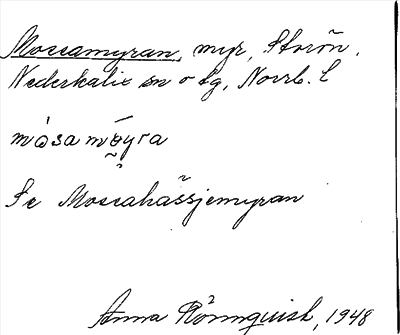 Moscamyran, myr, Storön.
Nederkalix sn o tg, Norrb. L
mòsa mǿyra
Se Moscahässjemyran
Anna Rönnquist, 1948